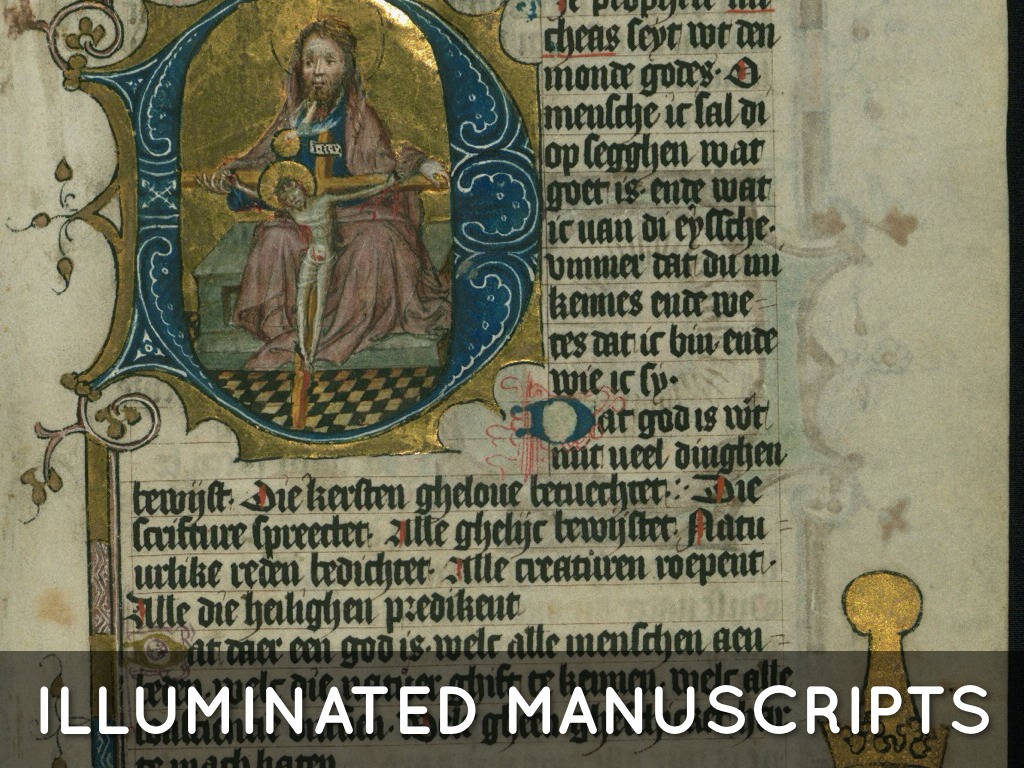 cheas seyt wt den
monde godes· O
mensche ic sal di
op segghen wat
goet is ende wat
ic uan di eyssche·
vmmer dat du mi
kennes ende we
tes dat ic bin ende
wie ic sy·
Dat god is wt
nut ueel dinghen
bewijst· Die kersten gheloue betuechtet· Die
scrifture spreectet· Alle ghelijc bewijstet· Natu
urlike reden bedichtet· Alle creaturen roepent·
Alle die heilighen predikent
Dat daer een god is· welc alle menschen aen
welc die natuer ghift te kennen· welc alle
ILLUMINATED MANUSCRIPTS